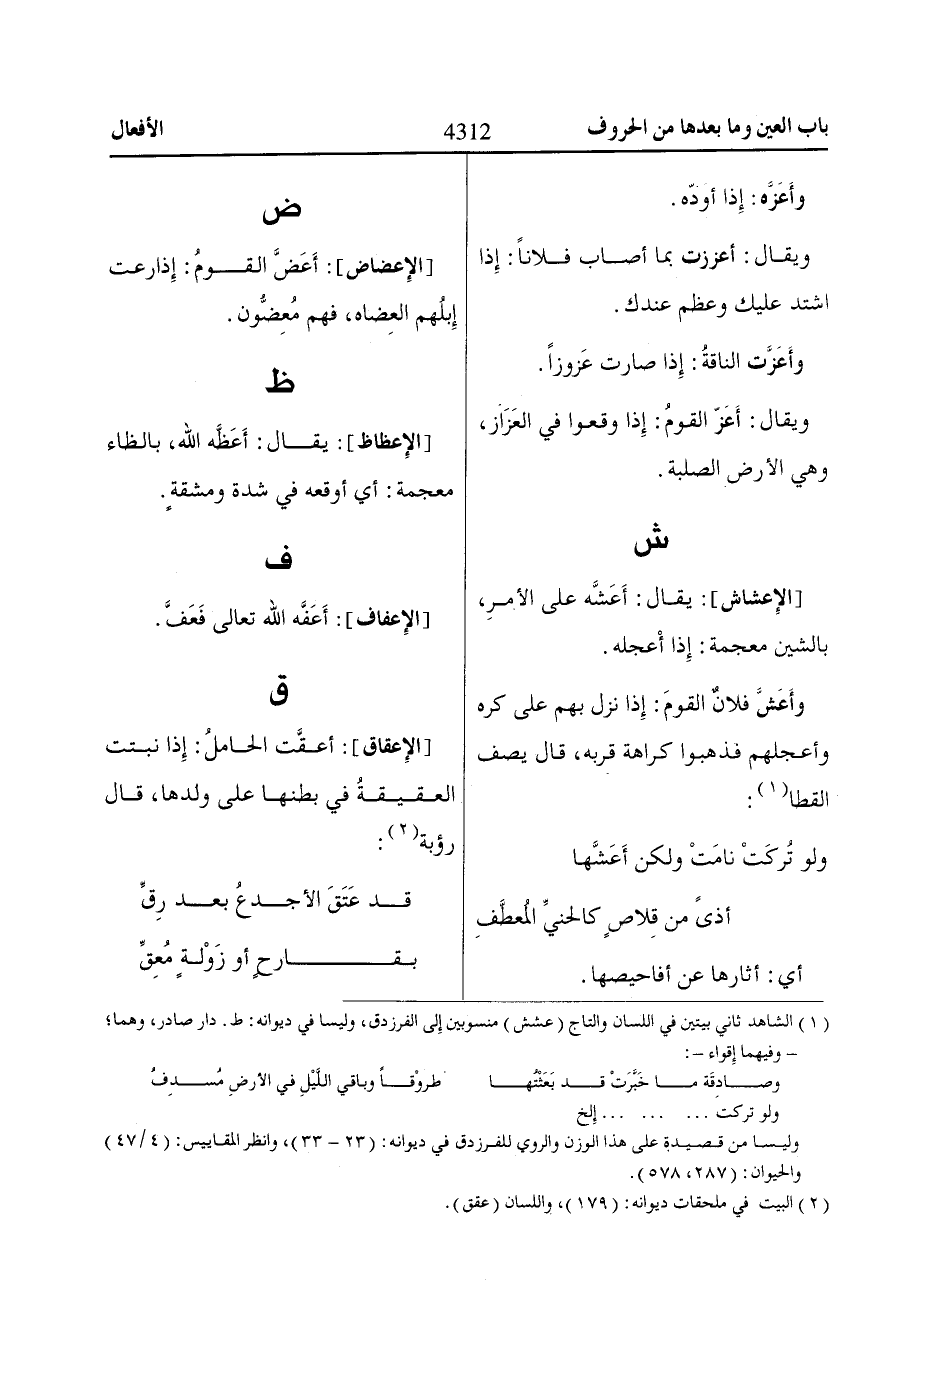 باب العين وما بعدها من الحروف 4312 الأفعال
وأَعَزَّه: إذا أودّه.
ويقال: أعززت بما أصاب فلاناً: إذا
اشتد عليك وعظم عندك.
وأَعَزَّت الناقةُ: إذا صارت عَزوزاً.
ويقال: أَعَزّ القومُ: إذا وقعوا في العَزَاز،
وهي الأرض الصلبة.
ش
[الإعشاش]: يقال: أَعَشَّه على الأمرِ،
بالشين معجمة: إذا أعجله.
وأَعَشَّ فلانٌ القومَ: إذا نزل بهم على كره
وأعجلهم فذهبوا كراهة قربه، قال يصف
القطا(١):
ولو تُركَتْ نامَتْ ولكن أَعَشَّها
أذىً من قلاصٍ كالحنيِّ المُعطَّفِ
أي: أثارها عن أفاحيصها.
ض
[الإعضاض]: أَعَضَّ القومُ: إذارعت
إبلُهم العضاه، فهم مُعِضُّون.
ظ
[الإعظاظ]: يقال: أَعَظَّه الله، بالظاء
معجمة: أي أوقعه في شدة ومشقةٍ.
ف
[الإعفاف]: أَعَفَّه الله تعالى فَعَفَّ.
ق
[الإعقاق]: أعقَّت الحاملُ: إذا نبتت
العقيقةُ في بطنها على ولدها، قال
رؤبة(٢):
قد عَتَقَ الأجدعُ بعد رِقِّ
بقارحٍ أو زَوْلةٍ مُعِقِّ
(١) الشاهد ثاني بيتين في اللسان والتاج (عشش) منسوبين إلى الفرزدق، وليسا في ديوانه: ط. دار صادر، وهما؛
– وفيهما إقواء –:
وصادقة ما خَبَّرَتْ قد بَعَثْتُها طروْقاً وباقي اللَّيْلِ في الأرضِ مُسدفُ
ولو تركت ... ... ... إلخ
وليسا من قصيدة على هذا الوزن والروي للفرزدق في ديوانه: (٢٣ – ٣٣)، وانظر المقاييس: (٤/٤٧)
والحيوان: (٢٨٧، ٥٧٨).
(٢) البيت في ملحقات ديوانه: (١٧٩)، واللسان (عقق).